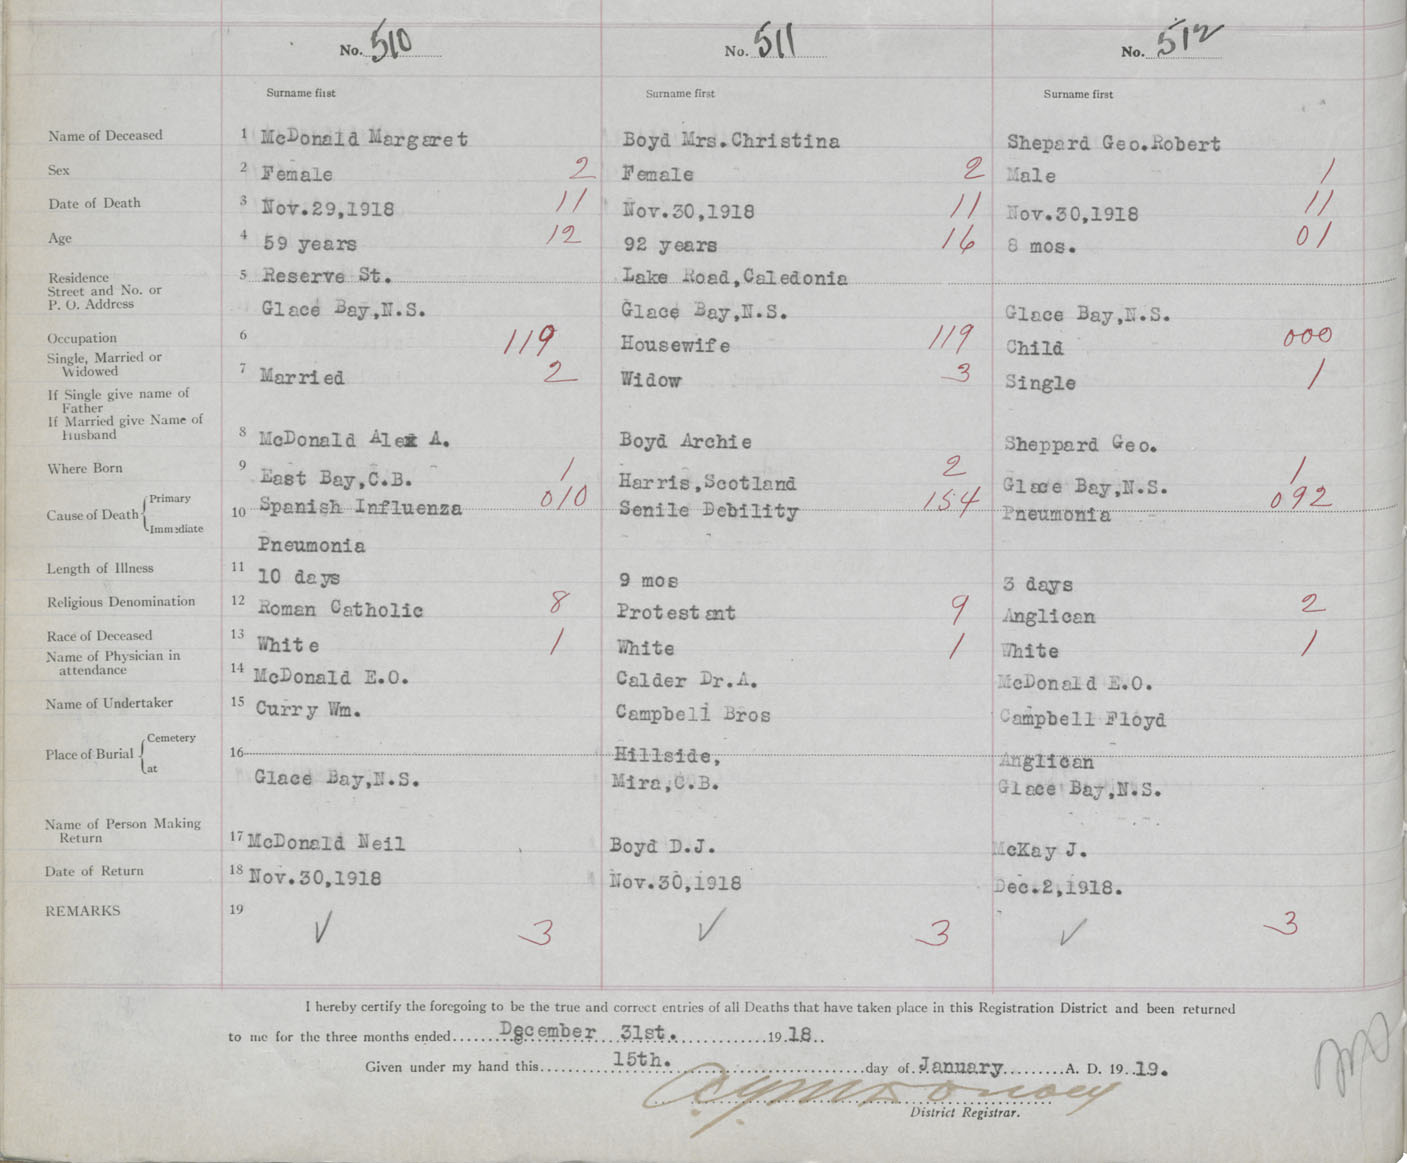 No. 510 No. 511 No. 512
Surname first Surname first Surname first
Name of Deceased 1 McDonald Margaret Boyd Mrs.Christina Shepard Geo.Robert
Sex 2 Female 2 Female 2 Male 1
Date of Death 3 Nov.29,1918 11 Nov.30,1918 11 Nov.30,1918 11
Age 4 59 years 12 92 years 16 8 mos. 01
Residence 5 Reserve St. Lake Road,Caledonia
Street and No. or
P. O. Address Glace Bay,N.S. Glace Bay,N.S. Glace Bay,N.S.
Occupation 6 119 Housewife 119 Child 000
Single, Married or
Widowed 7 Married 2 Widow 3 Single 1
If Single give name of
Father
If Married give Name of
Husband 8 McDonald Alex A. Boyd Archie Sheppard Geo.
Where Born 9 East Bay,C.B. 1 Harris,Scotland 2 Glace Bay,N.S. 1
Primary
Cause of Death 10 Spanish Influenza 010 Senile Debility 154 Pneumonia 092
Immediate
Pneumonia
Length of Illness 11 10 days 9 mos 3 days
Religious Denomination 12 Roman Catholic 8 Protestant 9 Anglican 2
Race of Deceased 13 White 1 White 1 White 1
Name of Physician in
attendance 14 McDonald E.O. Calder Dr.A. McDonald E.O.
Name of Undertaker 15 Curry Wm. Campbell Bros Campbell Floyd
Cemetery
Place of Burial 16 Hillside, Anglican
at Glace Bay,N.S. Mira,C.B. Glace Bay,N.S.
Name of Person Making
Return 17 McDonald Neil Boyd D.J. McKay J.
Date of Return 18 Nov.30,1918 Nov.30,1918 Dec.2,1918.
REMARKS 19 ✓ 3 ✓ 3 ✓ 3
I hereby certify the foregoing to be the true and correct entries of all Deaths that have taken place in this Registration District and been returned
to me for the three months ended December 31st. 1918
Given under my hand this 15th. day of January A. D. 1919.
District Registrar.